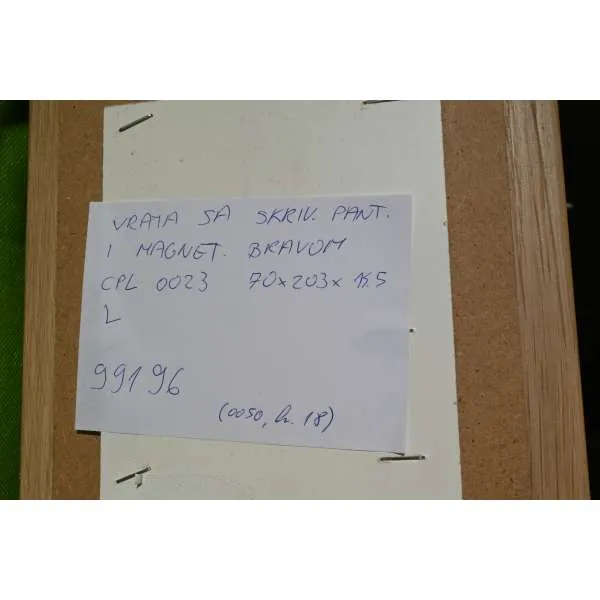 VRATA SA SKRIV. PANT.
I MAGNET. BRAVOM
CPL 0023 70x203x 15.5
L
99196
(0050, h. 18)